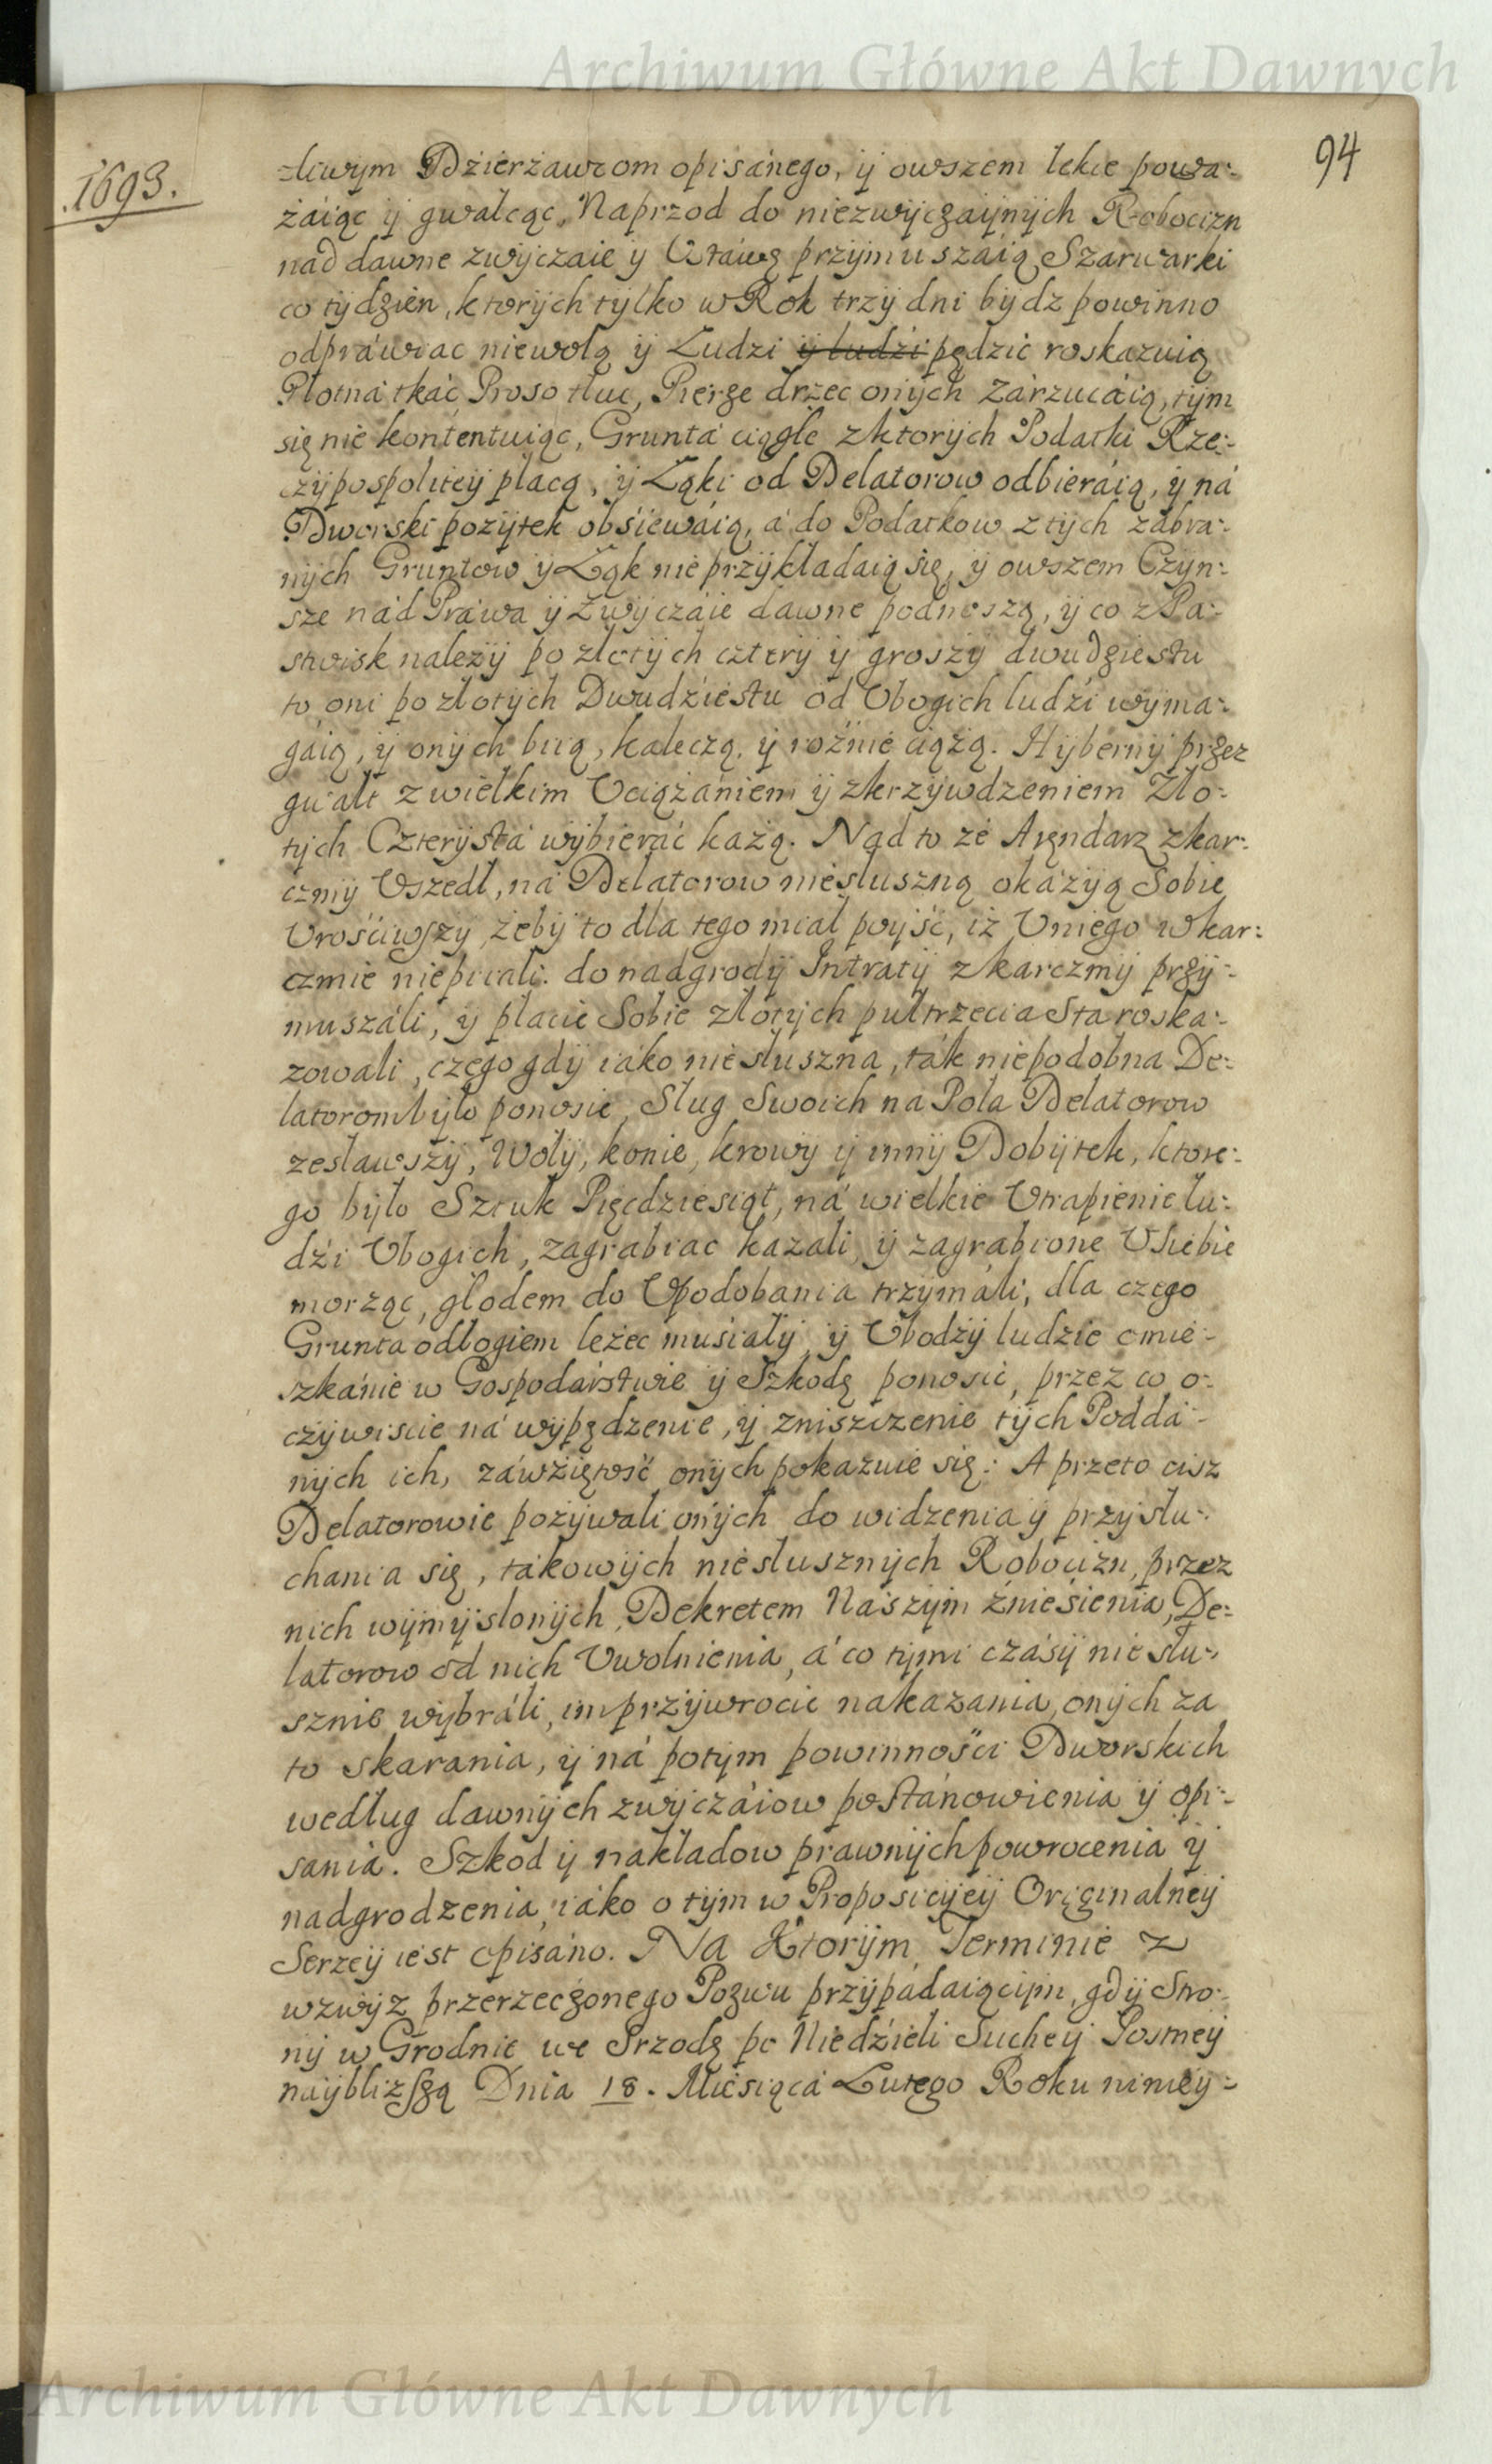 Archiwum Główne Akt Dawnych
94
1693.
zliwym Dzierżawcom opisánego, y owszem lekce powa-
żáiąc y gwałcąc, Naprzod do niezwyczaynych Robocizn
nád dawne zwyczaie y Ustáwę przymuszáią, Szarwarki
co tydzień, ktorych tylko w Rok trzy dni bydz powinno
odpráwiac niewolą y Ludzi y ludźi pędzić roskazuią
Płotná tkáć Proso tłuc, Pierze drzec onych zárzucáią, tym
się nie kontentuiąc, Gruntá ciągłe z ktorych Podatki Rze-
czypospolitey płacą, y Łąki od Delatorow odbieráią, y ná
Dworski pożytek obsiewáią, á do Podatkow z tych zábra-
nych Gruntow y Łąk nie przykładaią się, y owszem Czyn-
sze nád Práwa y Zwyczáie dawne podnoszą, y co z Pa-
stwisk należy po złotych cztery y groszy dwudziestu
to oni po złotych Dwudźiestu od Ubogich ludźi wyma-
gáią, y onych biią, kaleczą, y rożnie ciążą. Hyberny przez
gwałt z wielkim Uciążániem y zkrzywdzeniem Zło-
tych Czterysta wybieráć każą. Nad to że Arendarz z kar-
czmy Uszedł, ná Delatorow niesłuszną okázyą Sobie
Urościwszy, żeby to dla tego miał poyść, iż U niego w kar-
czmie niepiiali. do nadgrody Intraty z karczmy przy-
muszáli, y płacić Sobie złotych pułtrzecia Sta roska-
zowali, czego gdy iáko niesłuszna, ták niepodobna De-
latorom było ponosić, Sług Swoich na Pola Delatorow
zesławszy, Woły, konie, krowy y inny Dobytek, ktore-
go było Sztuk Pięcdziesiąt, ná wielkie Utrapienie lu-
dźi Ubogich, zagrabiac kazali, y zagrabione U siebie
morząc, głodem do Upodobania trzymáli, dla czego
Grunta odłogiem leżec musiały, y Ubodzy ludzie omie-
szkánie w Gospodárstwie y Szkodę ponosić, przez co o-
czywiscie ná wypędzenie, y zniszczenie tych Poddá-
nych ich, záwziętość onych pokazuie się. A przeto cisz
Delatorowie pozywali onych do widzenia y przysłu-
chania się, tákowych niesłusznych Robocizn, przez
nich wymyslonych, Dekretem Nászym źniesienia, De-
latorow od nich Uwolnienia, á co tymi czásy niesłu-
sznie wybráli, im przywrocić nakazania, onych za
to skarania, y ná potym powinnośći Dworskich
według dawnych zwyczáiow postánowienia y opi-
sania. Szkod y nakładow prawnych powrocenia y
nadgrodzenia, iáko o tym w Proposicyey Originalney
Serzey iest opisáno. Na Ktorym Terminie z
wzwyż przerzeczonego Pozwu przypádaiącym, gdy Stro-
ny w Grodnie we Srzodę po Niedźieli Suchey Postney
nayblizszą Dnia 18. Miesiącá Lutego Roku niniey-
Archiwum Główne Akt Dawnych